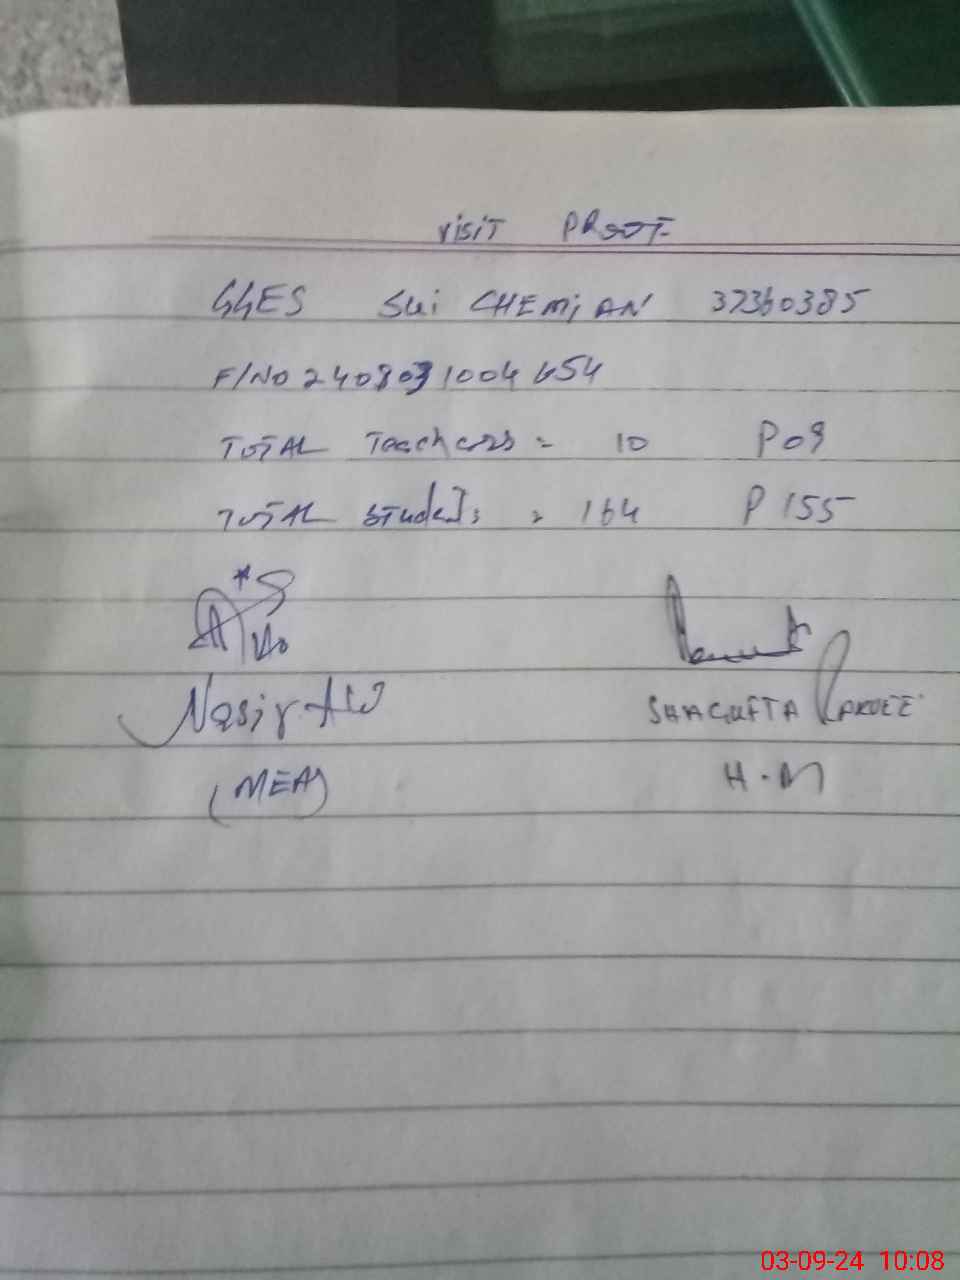 visit PROOF
GGES Sui CHEMiAN 37360385
F/NO
TOTAL Teachers = 10 P 09
TOTAL Students = 164 P 155
Nasir Ali SHAGUFTA
(MEA) H.M
03-09-24 10:08